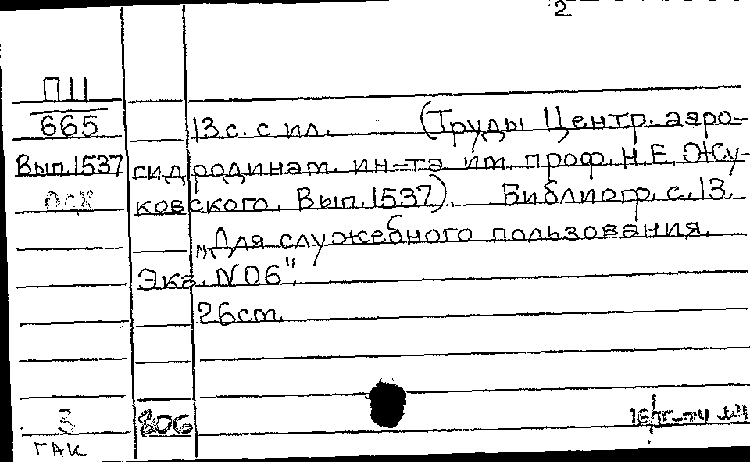 2
П11
665
13 с. с ил. (Труды Центр. аэро-
Вып. 1537 гидродинам. ин-та им. проф. Н.Е. Жу-
ковского. Вып. 1537). Библиогр. с. 13.
„Для служебного пользования.
Экз. N06".
26 см.
3 806
ГАК